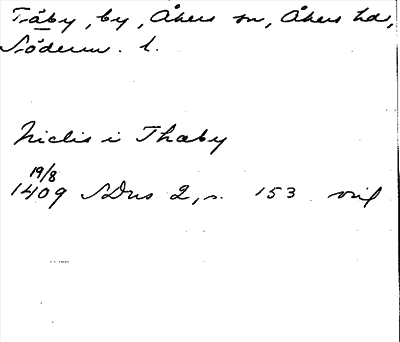 Tåby, by, Åkers sn, Åkers hd,
Söderm. l.
Niclis i Thaby
19/8
1409 SDns 2, s. 153 oril